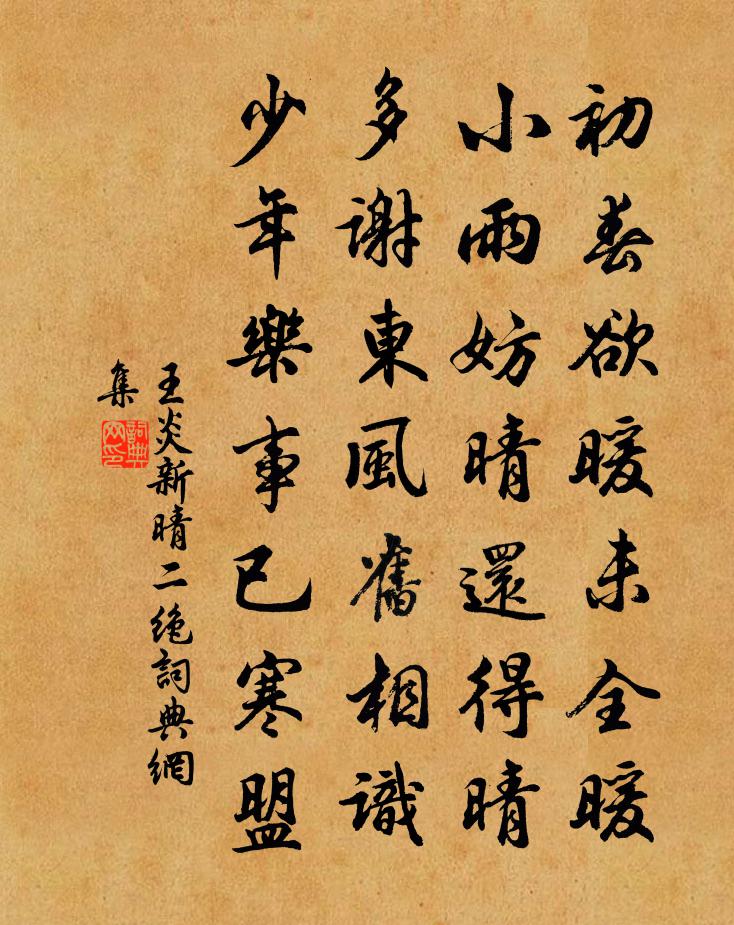 初春欲暖未全暖
小雨妨晴還得晴
多謝東風舊相識
少年樂事已寒盟
王炎新晴二絶詞典網
集
詞典
网印